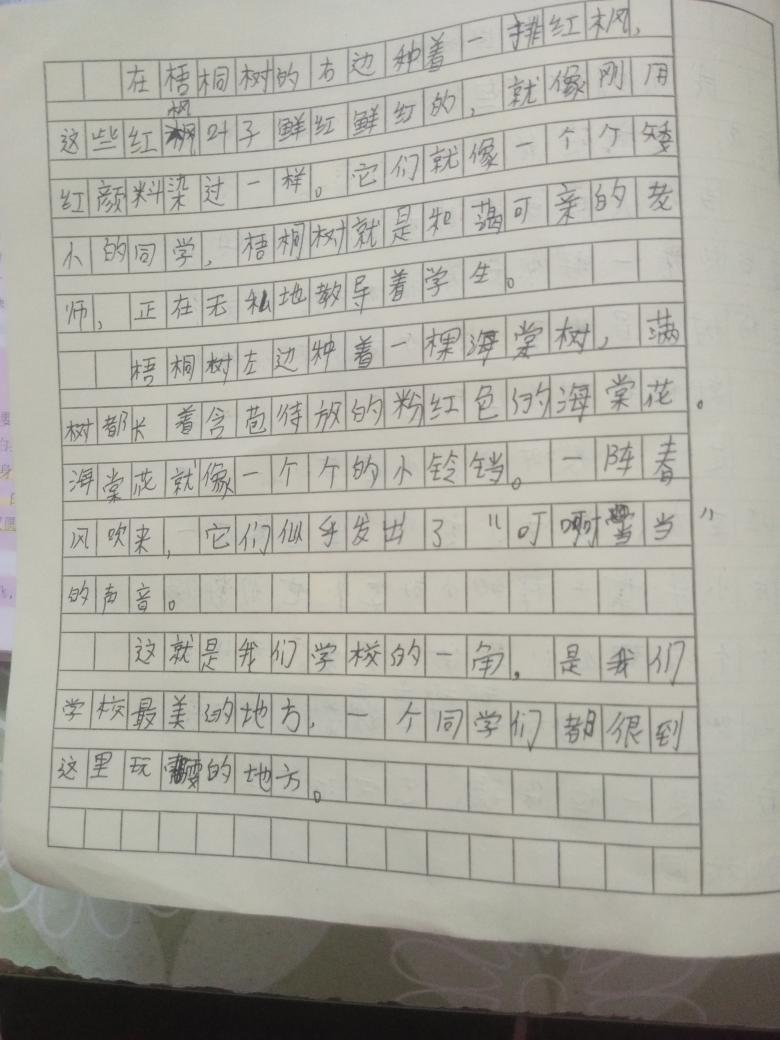 在梧桐树的右边种着一排红枫，
这些红枫叶子鲜红鲜红的，就像刚用
红颜料染过一样。它们就像一个个矮
小的同学，梧桐树就是和蔼可亲的老
师，正在无私地教导着学生。
梧桐树左边种着一棵海棠树，满
树都长着含苞待放的粉红色的海棠花。
海棠花就像一个个的小铃铛。一阵春
风吹来，它们似乎发出了“叮啊当当”
的声音。
这就是我们学校的一角，是我们
学校最美的地方，一个同学们都很到
这里玩耍的地方。